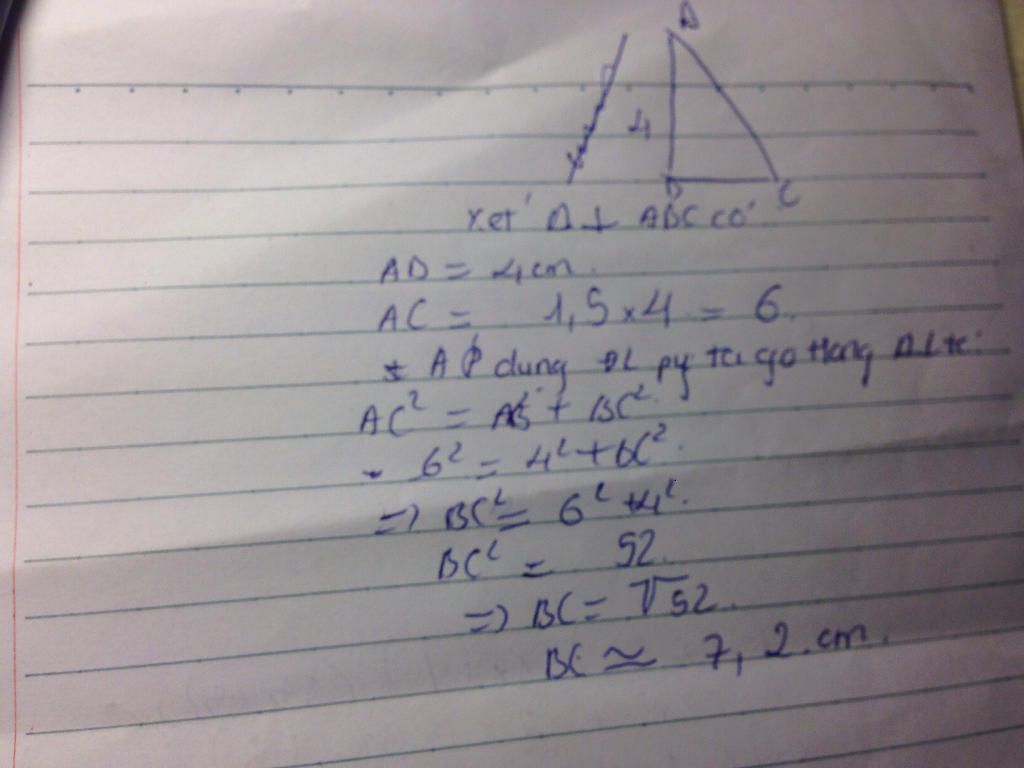 A
4
B C
xét Δ⊥ ABC có
AB = 4 cm.
AC = 1,5 x 4 = 6.
* AP dụng ĐL py ta go trong Δ⊥ tc:
AC² = AB² + BC².
- 6² = 4² + BC².
=> BC² = 6² + 4².
BC² = 52.
=> BC = √52.
BC ≃ 7,2 cm.